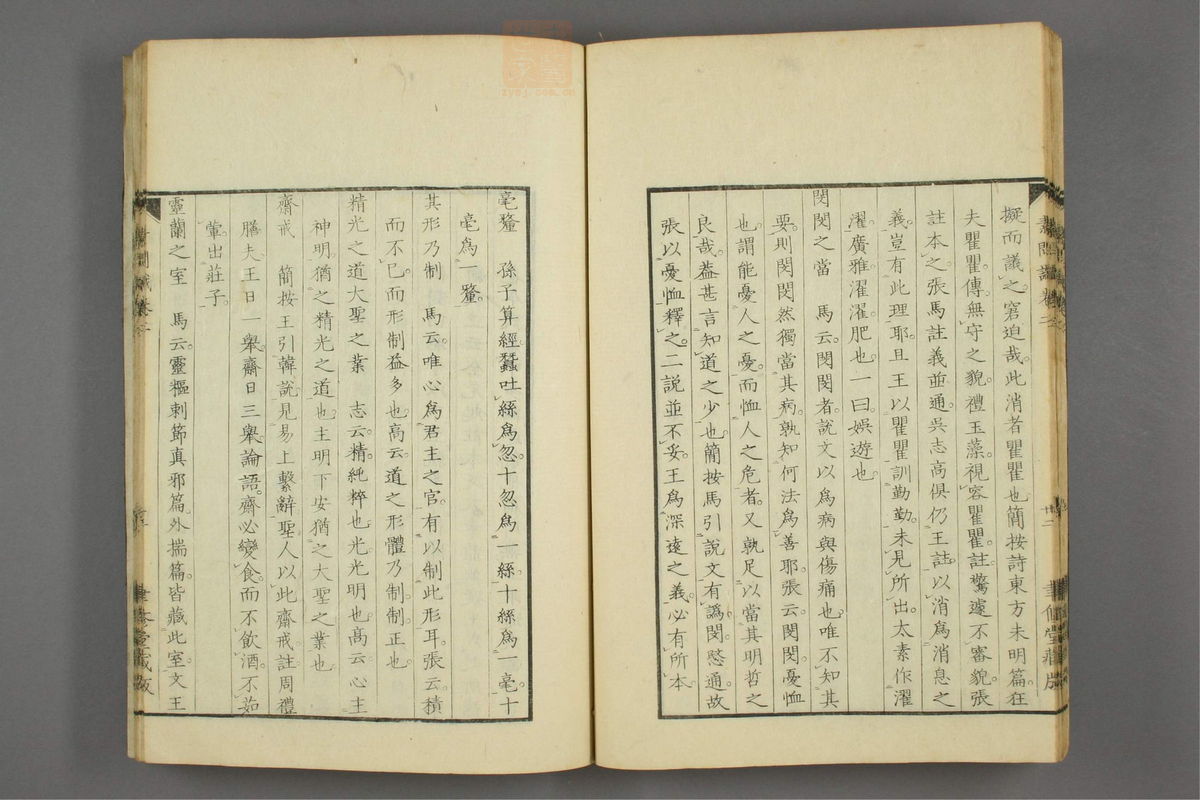 擬而議之窘迫哉。此消者瞿瞿也。簡按詩東方未明篇。狂
夫瞿瞿。傳。無守之貌。禮玉藻。視容瞿瞿。註。驚遽不審貌。張
註本之。張馬註義並通。吳志高俱仍王註。以消爲消息之
義。豈有此理耶。且王以瞿瞿訓勤勤。未見所出。太素作濯
濯。廣雅。濯濯。肥也。一曰娛遊也。
閔閔之當　馬云。閔閔者。說文以爲病與傷痛也。唯不知其
要。則閔閔然獨當其病。孰知何法爲善耶。張云。閔閔。憂恤
也。謂能憂人之憂。而恤人之危者。又孰足以當其明哲之
良哉。葢甚言知道之少也。簡按馬引說文有譌。閔愍通。故
張以憂恤釋之。二說並不妥。王爲深遠之義。必有所本。
毫釐　孫子算經。蠶吐絲爲忽。十忽爲一絲。十絲爲一毫。十
毫爲一釐。
其形乃制　馬云。唯心爲君主之官。有以制此形耳。張云。積
而不已。而形制益多也。高云。道之形體乃制。制。正也。
精光之道大聖之業　志云。精。純粹也。光。光明也。高云。心主
神明。猶之精光之道也。主明下安。猶之大聖之業也。
齋戒　簡按王引韓說。見易上繫辭聖人以此齋戒註。周禮
膳夫。王日一舉。齋日三舉。論語。齋必變食。而不飲酒不茹
葷。出莊子。
靈蘭之室　馬云。靈樞刺節真邪篇。外揣篇。皆藏此室。文王